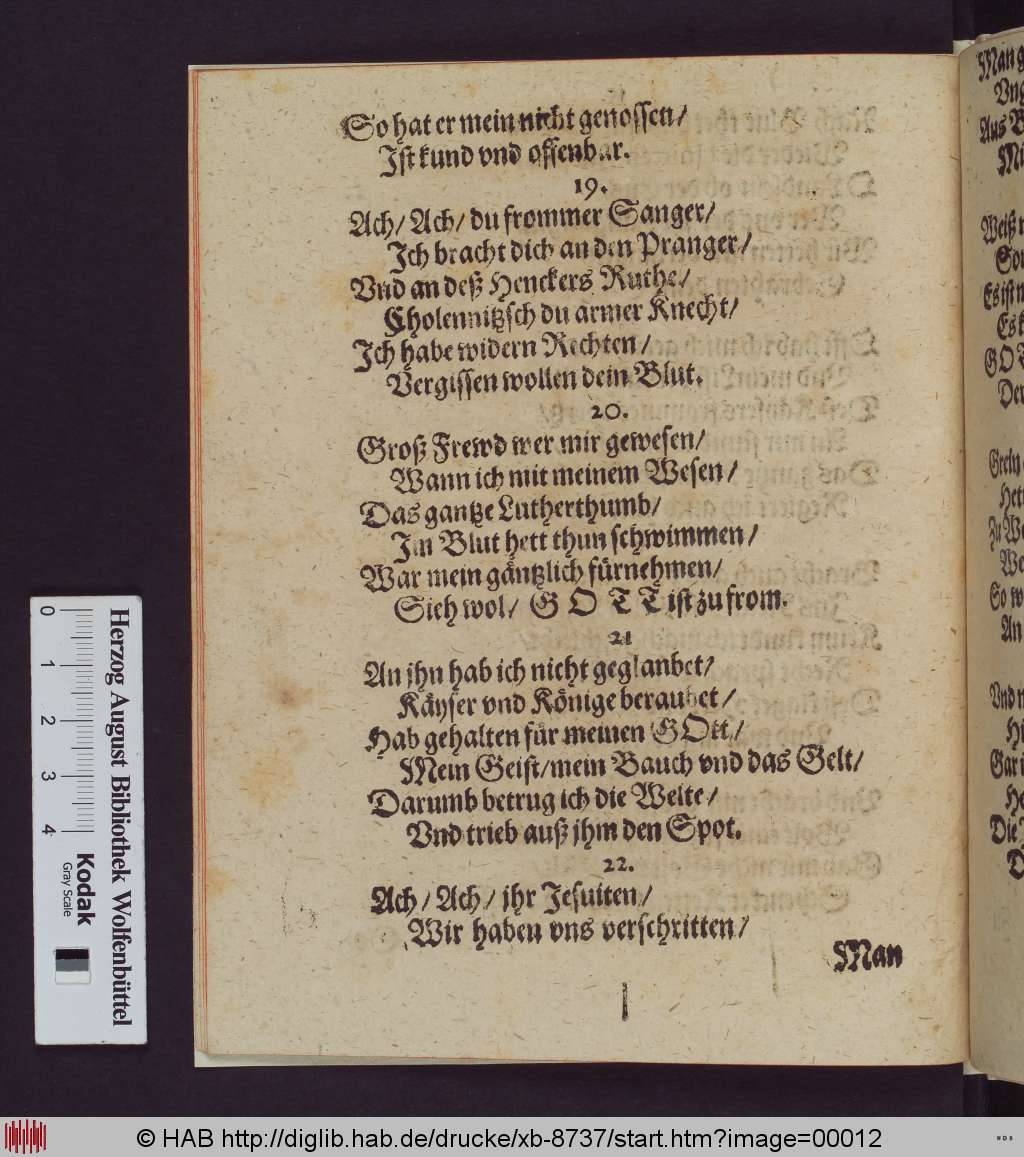 So hat er mein nicht genossen/
Ist kund vnd offenbar.
19.
Ach/ Ach/ du frommer Sanger/
Ich bracht dich an den Pranger/
Vnd an deß Henckers Ruthe/
Cholennitzsch du armer Knecht/
Ich habe widern Rechten/
Vergissen wollen dein Blut.
20.
Groß Frewd wer mir gewesen/
Wann ich mit meinem Wesen/
Das gantze Lutherthumb/
Im Blut hett thun schwimmen/
War mein gäntzlich fürnehmen/
Sieh wol/ GOTT ist zu from.
21
An jhn hab ich nicht geglanbet/
Käyser vnd Könige beraubet/
Hab gehalten für meinen GOtt/
Mein Geist/mein Bauch vnd das Gelt/
Darumb betrug ich die Welte/
Vnd trieb auß jhm den Spot.
22.
Ach/ Ach/ jhr Jesuiten/
Wir haben vns verschritten/
Man
Man
Aus
Mi
Weiß
Es ist
GOT
Der
Hett
Zu
So
An
Vnd
Gar
Die
0 1 2 3 4
Herzog August Bibliothek Wolfenbüttel
Kodak
Gray Scale
© HAB http://diglib.hab.de/drucke/xb-8737/start.htm?image=00012